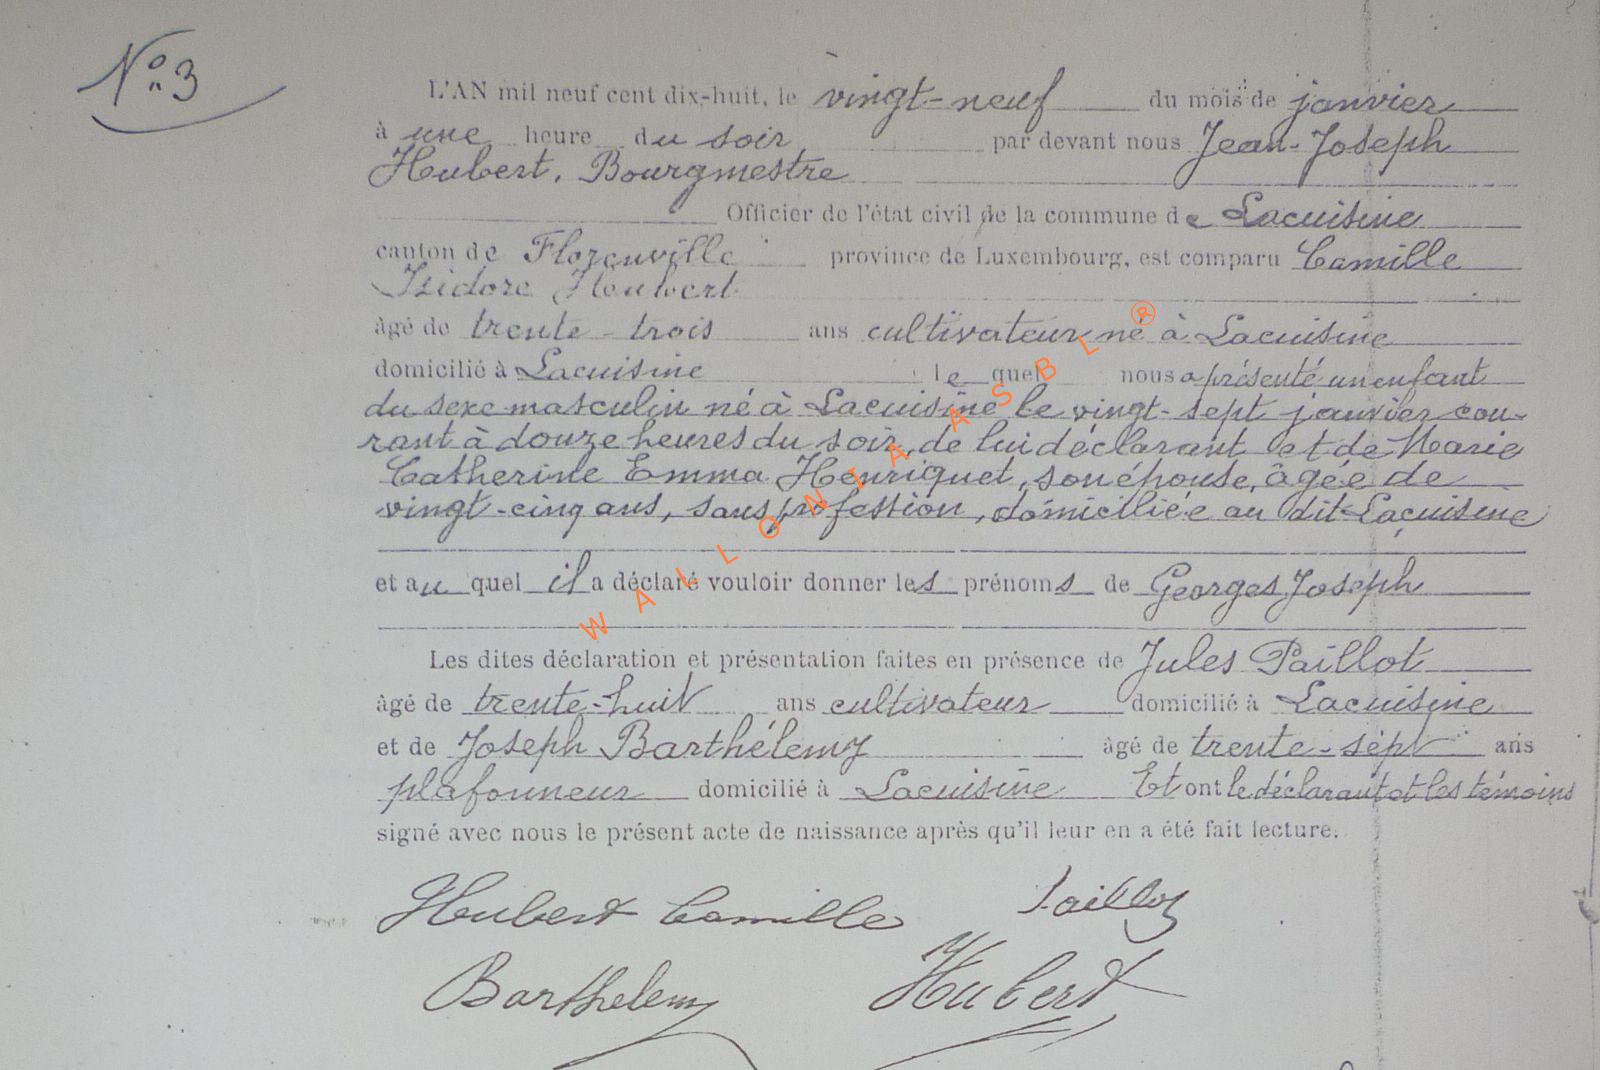 N° 3
L'AN mil neuf cent dix-huit, le vingt-neuf du mois de janvier
à une heure du soir par devant nous Jean-Joseph
Hubert, Bourgmestre
Officier de l'état civil de la commune de Lacuisine
canton de Florenville province de Luxembourg, est comparu Camille
Isidore Houbert
âgé de trente-trois ans cultivateur né à Lacuisine
domicilié à Lacuisine lequel nous a présenté un enfant
du sexe masculin né à Lacuisine le vingt-sept janvier cou-
rant à douze heures du soir, de lui déclarant et de Marie
Catherine Emma Henriquet, son épouse, âgée de
vingt-cinq ans, sans profession, domiciliée au dit Lacuisine
et au quel il a déclaré vouloir donner les prénoms de Georges Joseph
Les dites déclaration et présentation faites en présence de Jules Paillot
âgé de trente-huit ans cultivateur domicilié à Lacuisine
et de Joseph Barthélemy âgé de trente-sept ans
plafonneur domicilié à Lacuisine Et ont le déclarant et les témoins
signé avec nous le présent acte de naissance après qu'il leur en a été fait lecture.
Hubert Camille Paillot
Barthelemy Hubert
WALLONIA ASBL ®